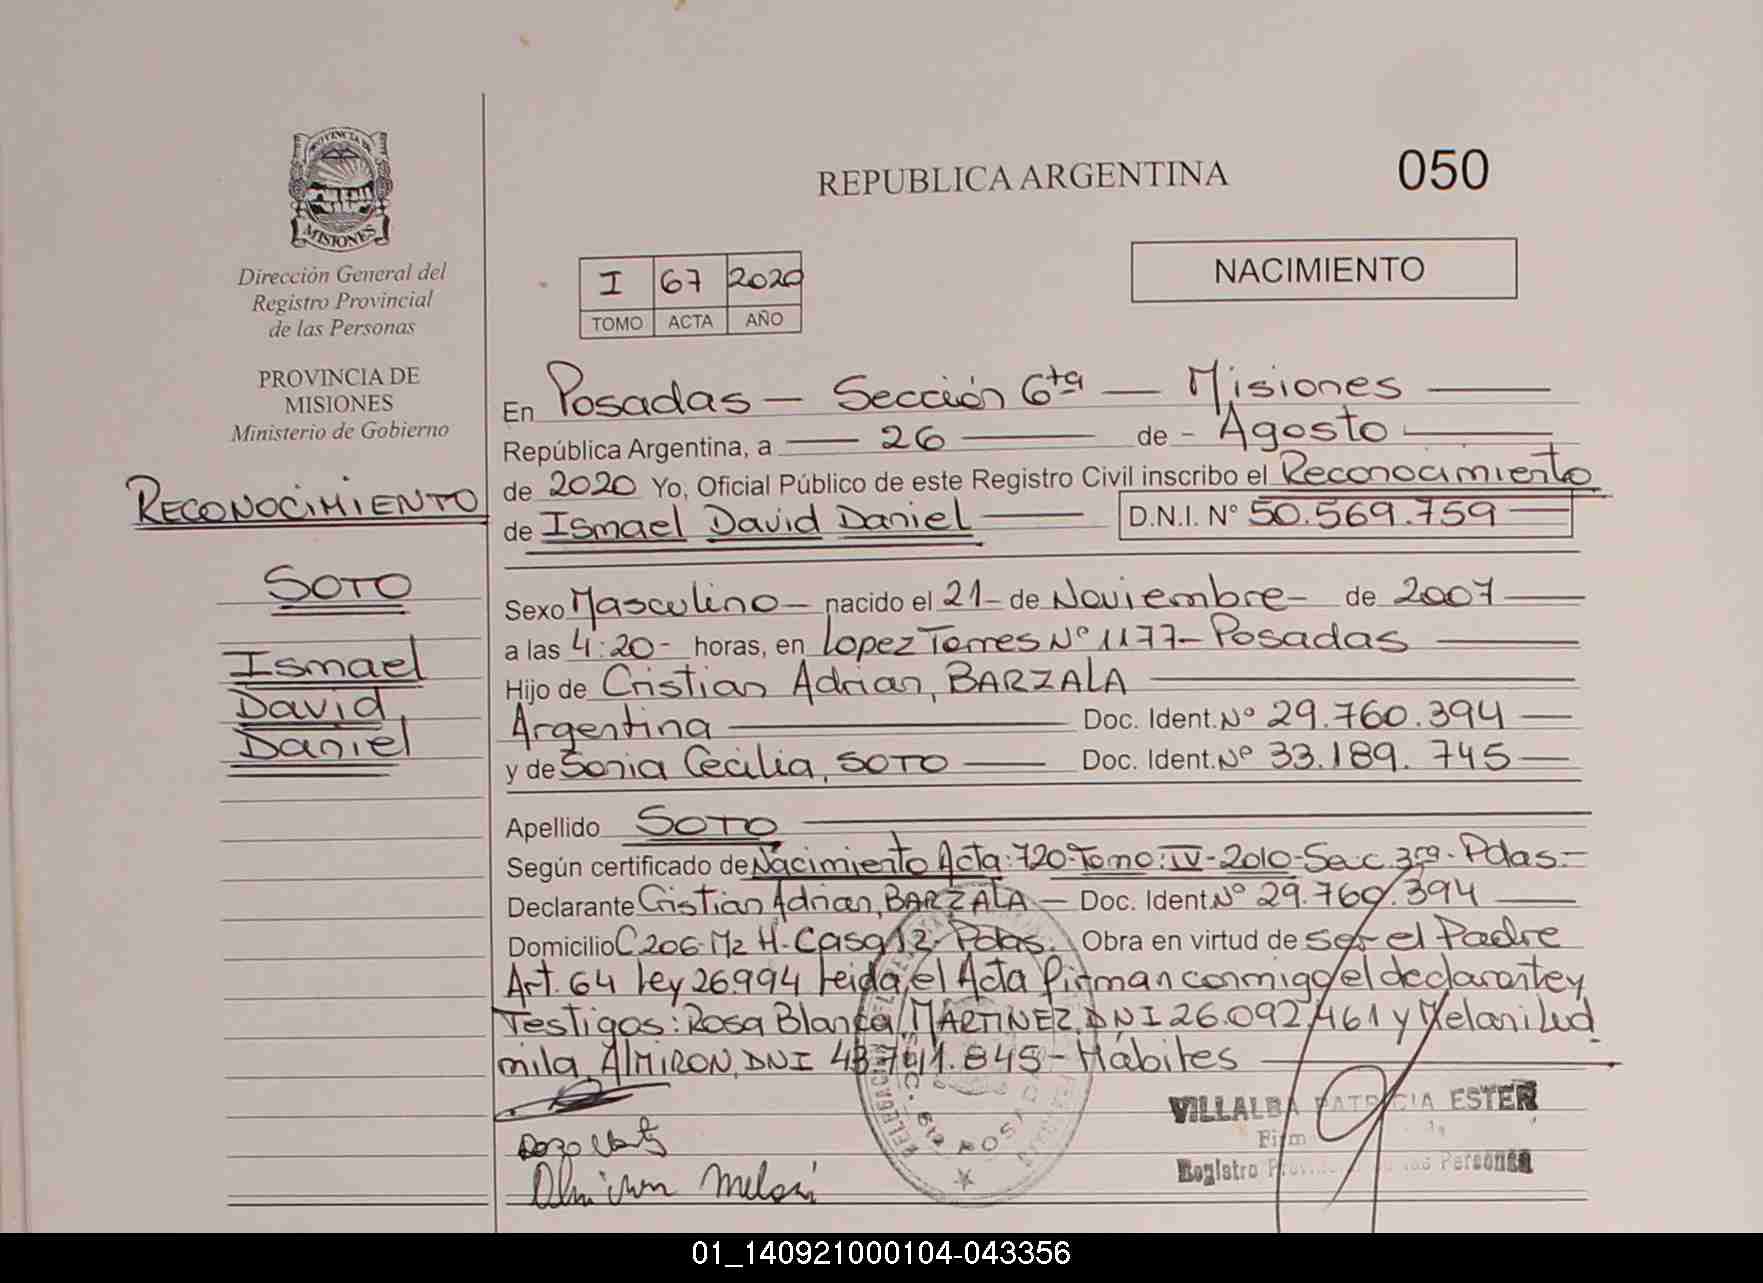 PROVINCIA DE
MISIONES
Dirección General del
Registro Provincial
de las Personas
PROVINCIA DE
MISIONES
Ministerio de Gobierno
RECONOCIMIENTO
SOTO
Ismael
David
Daniel
REPUBLICA ARGENTINA
050
I 67 2020
TOMO ACTA AÑO
NACIMIENTO
En Posadas - Sección 6ta - Misiones
República Argentina, a 26 de - Agosto
de 2020 Yo, Oficial Público de este Registro Civil inscribo el Reconocimiento
de Ismael David Daniel D.N.I. N° 50.569.759
Sexo Masculino - nacido el 21 - de Noviembre - de 2007
a las 4:20 - horas, en Lopez Torres N° 1177 - Posadas
Hijo de Cristian Adrian, BARZALA
Argentina Doc. Ident. N° 29.760.394
y de Sonia Cecilia, SOTO Doc. Ident. N° 33.189.745
Apellido SOTO
Según certificado de Nacimiento Acta: 720-Tomo: IV-2010-Sec. 3ra.-Pdas.-
Declarante Cristian Adrian, BARZALA - Doc. Ident. N° 29.760.394
Domicilio C 206-Mz H-Casa 12-Pdas. Obra en virtud de ser el Padre
Art. 64 Ley 26.994 Leida el Acta firman conmigo el declarante y
Testigos: Rosa Blanca MARTINEZ, DNI 26.092.461 y Melani Lud
mila, ALMIRON, DNI 43.741.845 - Hábiles
VILLALBA PATRICIA ESTER
Registro
Personas
POSADAS
Almiron Melani
01_140921000104-043356